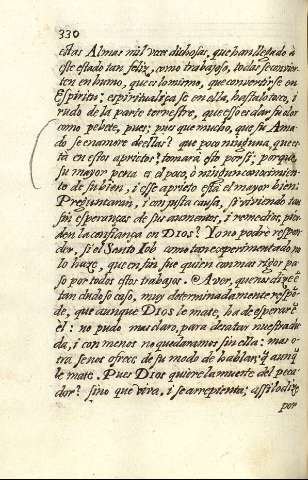 330
estas Almas mil veces dichosas, que han llegado à
este estado tan feliz, como trabajoso, todas se convier-
ten en humo, que es lo mismo, que convertirse en
Espiritu: espiritualiçase en ella, hasta lo toco, i
rudo de la parte terrestre, que esso es dar su olor
como pebete, pues: pus que mucho, que su Ama-
do se enamore de ellas? que poco ninguna, que es-
tà en estos aprietos: tomarà esto por si: porque
su mayor pena es el poco, ò ningun conocimien-
to de su bien, i esse aprieto està el mayor bien.
Preguntaràn, i con justa causa, si viviendo tan
sin esperanças de sus aumentos, i remedios, pier-
den la confiança en DIOS? Yo no podrè respon-
der, si el Santo Iob como tan experimentado no
lo haze, que en fin fue quien con mas rigor pa-
sò por todos estos trabajos. Aver, que nos dize en
tan dudoso caso, muy determinadamente respõ-
de, que aunque DIOS le mate, ha de esperar ē
èl: no pudo mas claro, para denotar nuestra du-
da, i con menos no quedaramos sin ella: mas o-
tra se nos ofrece de su modo de hablar, q̃ aunq̃
le mate. Pues DIOS quiere la muerte del peca-
dor? sino que viva, i se arrepienta; assi lo dize,
por